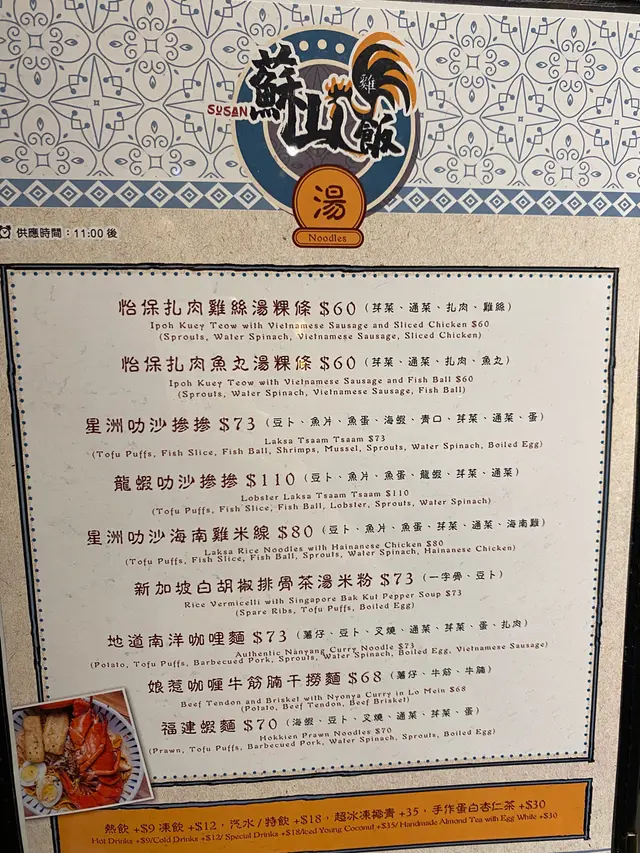 SUSAN 蘇山雞飯
湯
Noodles
供應時間：11:00 後
怡保扎肉雞絲湯粿條 $60 (芽菜、通菜、扎肉、雞絲)
Ipoh Kuey Teow with Vietnamese Sausage and Sliced Chicken $60
(Sprouts, Water Spinach, Vietnamese Sausage, Sliced Chicken)
怡保扎肉魚丸湯粿條 $60 (芽菜、通菜、扎肉、魚丸)
Ipoh Kuey Teow with Vietnamese Sausage and Fish Ball $60
(Sprouts, Water Spinach, Vietnamese Sausage, Fish Ball)
星洲叻沙摻摻 $73 (豆卜、魚片、魚蛋、海蝦、青口、芽菜、通菜、蛋)
Laksa Tsaam Tsaam $73
(Tofu Puffs, Fish Slice, Fish Ball, Shrimps, Mussel, Sprouts, Water Spinach, Boiled Egg)
龍蝦叻沙摻摻 $110 (豆卜、魚片、魚蛋、龍蝦、芽菜、通菜)
Lobster Laksa Tsaam Tsaam $110
(Tofu Puffs, Fish Slice, Fish Ball, Lobster, Sprouts, Water Spinach)
星洲叻沙海南雞米線 $80 (豆卜、魚片、魚蛋、芽菜、通菜、海南雞)
Laksa Rice Noodles with Hainanese Chicken $80
(Tofu Puffs, Fish Slice, Fish Ball, Sprouts, Water Spinach, Hainanese Chicken)
新加坡白胡椒排骨茶湯米粉 $73 (一字骨、豆卜)
Rice Vermicelli with Singapore Bak Kut Pepper Soup $73
(Spare Ribs, Tofu Puffs, Boiled Egg)
地道南洋咖哩麵 $73 (薯仔、豆卜、叉燒、通菜、芽菜、蛋、扎肉)
Authentic Nanyang Curry Noodle $73
(Potato, Tofu Puffs, Barbecued Pork, Sprouts, Water Spinach, Boiled Egg, Vietnamese Sausage)
娘惹咖喱牛筋腩干撈麵 $68 (薯仔、牛筋、牛腩)
Beef Tendon and Brisket with Nyonya Curry in Lo Mein $68
(Potato, Beef Tendon, Beef Brisket)
福建蝦麵 $70 (海蝦、豆卜、叉燒、通菜、芽菜、蛋)
Hokkien Prawn Noodles $70
(Prawn, Tofu Puffs, Barbecued Pork, Water Spinach, Sprouts, Boiled Egg)
熱飲 +$9 凍飲 +$12，汽水 / 特飲 +$18，超冰凍椰青 +35，手作蛋白杏仁茶 +$30
Hot Drinks +$9/Cold Drinks +$12/ Special Drinks +$18/Iced Young Coconut +$35/ Handmade Almond Tea with Egg White +$30